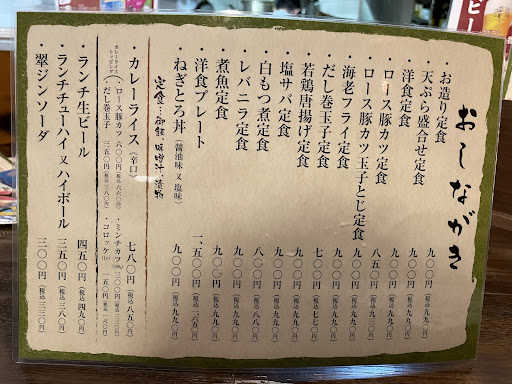 おしながき
・お造り定食 九〇〇円(税込九九〇円)
・天ぷら盛合せ定食 九〇〇円(税込九九〇円)
・洋食定食 九〇〇円(税込九九〇円)
・ロース豚カツ定食 八五〇円
・ロース豚カツ玉子とじ定食 九〇〇円(税込九九〇円)
・海老フライ定食 九〇〇円(税込九九〇円)
・だし巻玉子定食 七〇〇円(税込七七〇円)
・若鶏唐揚げ定食 九〇〇円(税込九九〇円)
・塩サバ定食 九〇〇円(税込九九〇円)
・白もつ煮定食 八〇〇円(税込八八〇円)
・レバニラ定食 九〇〇円(税込九九〇円)
・煮魚定食 九〇〇円(税込九九〇円)
・洋食プレート 一、五〇〇円
・ねぎとろ丼(醤油味又塩味) 九〇〇円(税込九九〇円)
定食…御飯・味噌汁・漬物
・カレーライス(辛口) 七八〇円(税込八五〇円)
カレーライストッピング
・ロース豚カツ 六〇〇円(税込六六〇円)
・ミンチカツ 三〇〇円(税込三三〇円)
・だし巻玉子 三五〇円(税込三八〇円)
・コロッケ 一五〇円(税込一六〇円)
・ランチ生ビール 四五〇円(税込四九〇円)
・ランチチューハイ又ハイボール 三五〇円(税込三八〇円)
・翠ジンソーダ 三〇〇円(税込三三〇円)